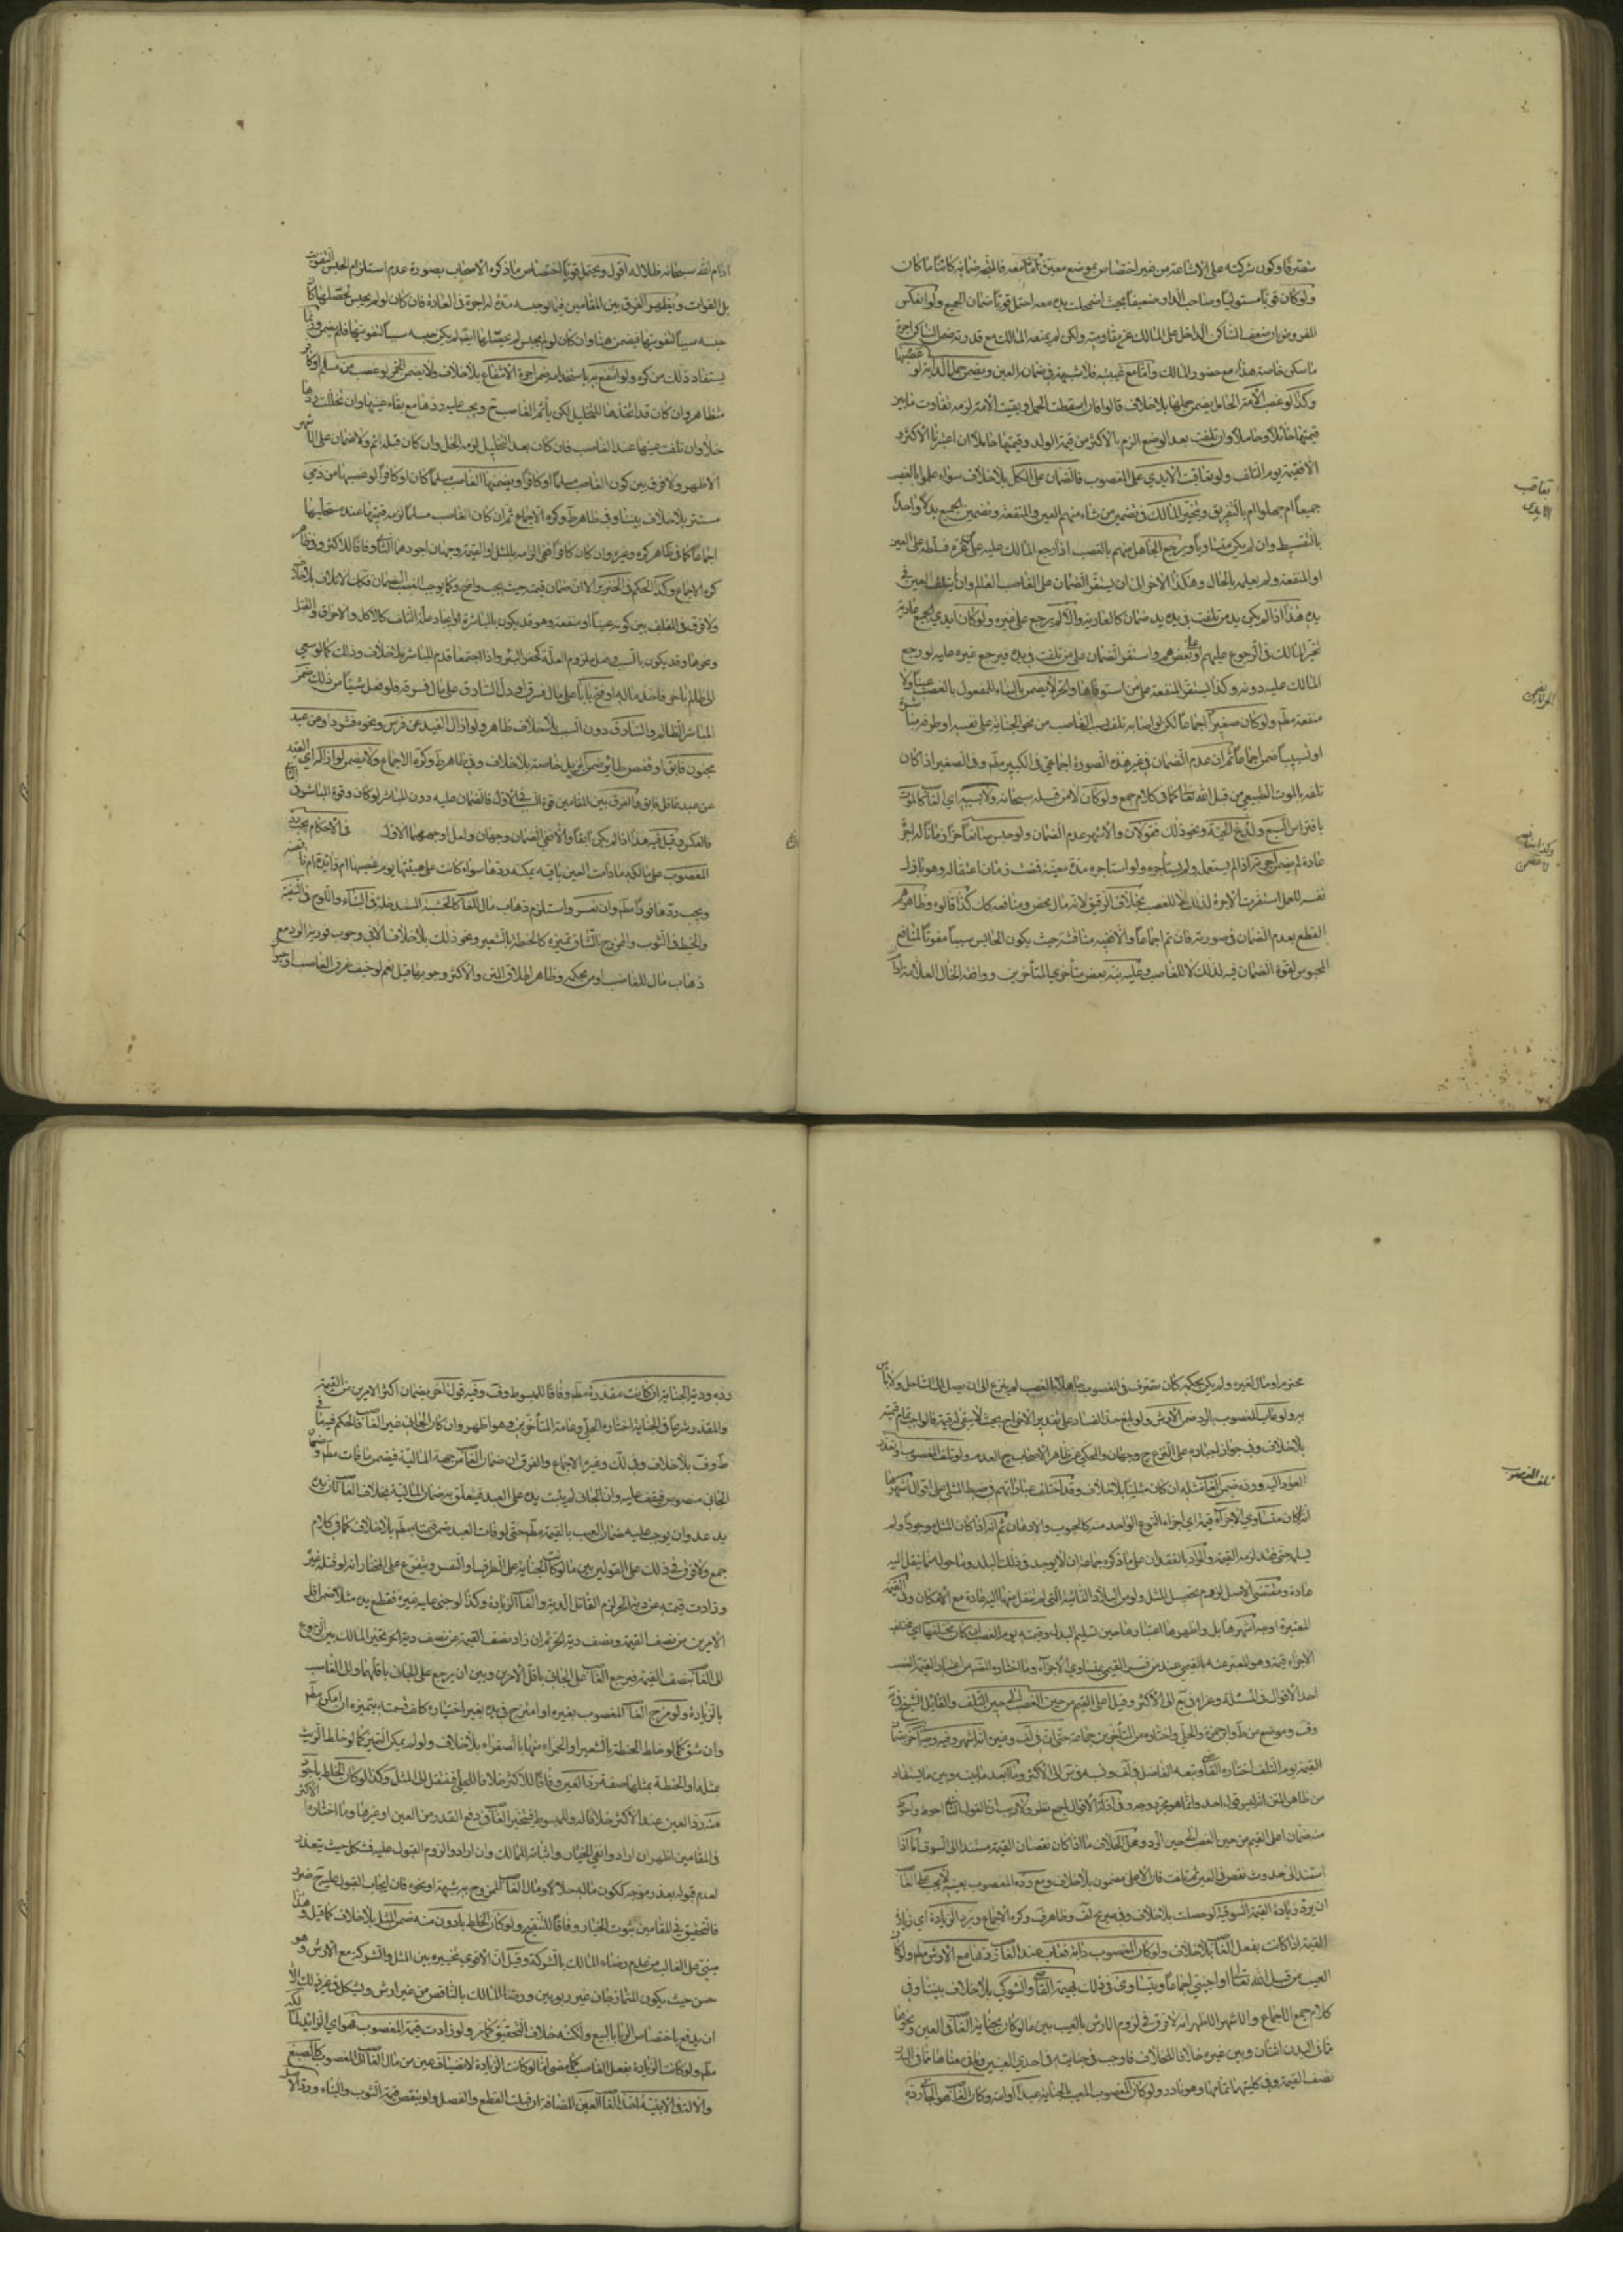 متصرفا وكون شركته على الاشاعة من غير اختصاص بموضع معين كائنا ما كان
ولو كان قويا مستوليا وصاحب الدار ضعيفا بحيث اضمحلت يده معه احتمل قويا ضمان الجميع ولو انعكس
المفروض بان ضعف الساكن الداخل على المالك عن مقاومته ولكن لم يمنعه المالك مع قدرته ضمن الساكن اجرة
ما سكن خاصة هذا مع حضور المالك وامّا مع غيبته فلا شبهة في ضمان العين ويضمن حمل الدابة لو غصبها
وكذا لو غصب الأمة الحامل يضمن حملها بلا خلاف قالوا فان اسقطت الحمل وبقيت الأمة لزمه تفاوت ما بين
قيمتها حائلا وحاملا وان تلفت بعد الوضع الزم بالأكثر من قيمة الولد وقيمتها حاملا ان اعتبرنا الاكثر و
الا فقيمة يوم التلف ولو تعاقبت الايدي على المغصوب فالضمان على الكل بلا خلاف سواء علموا بالغصب
جميعا ام جهلوا ام بالتفريق ويتخير المالك في تضمين من شاء منهم العين والمنفعة وتضمين الجميع بدلا واحدا
بالتقسيط وان لم يكن متساويا ويرجع الجاهل منهم بالغصب اذا رجع المالك عليه على من غره فسلطه على العين
او المنفعة ولم يعلمه بالحال وهكذا الآخر الى ان يستقر الضمان على الغاصب العالم وان لم يتلف العين في
يده هذا اذا لم يكن يد من تلفت في يده يد ضمان كالعارية والا لم يرجع على غيره ولو كان ايدي الجميع عادية
تخير المالك في الرجوع عليهم او على بعضهم واستقر الضمان على من تلفت في يده فيرجع غيره عليه لو رجع
المالك عليه دونه وكذا يستقر المنفعة على من استوفاها والحر لا يضمن بالبناء للمفعول بالغصب عينا ولا
منفعة مطم ولو كان صغيرا اجماعا لكن لو اصابه تلف بسبب الغاصب من نحو الجناية على نفسه او طرفه مباشرة
او تسبيبا ضمن اجماعا ثم ان عدم الضمان في غير هذه الصورة اجماعي في الكبير مطم وفي الصغير اذا كان
تلفه بالموت الطبيعي من قبل الله تعالى كما في كلام جمع ولو كان لا من قبله سبحانه ولا بسببه اي الغا كالموت
بافتراس السبع ولدغ الحية ونحو ذلك فقولان والاشهر عدم الضمان ولو حبس صانعا حرا زمانا له اجرة
عادة لم يضمن اجرته اذا لم يستعمله ولم يستأجره ولو استاجره مدة معينة فمضت زمان اعتقاله وهو باذل
نفسه للعمل استقرت الاجرة لذلك لا للغصب بخلاف الرقيق لانه مال محض ومنافعه كك كذا قالوه وظاهرهم
القطع بعدم الضمان في صورته فان تم اجماعا والا ففيه مناقشة حيث يكون الحابس سببا مفوتا لمنافع
المحبوس لقوة الضمان فيه لذلك لا للغاصب وعليه نبه بعض متأخري المتأخرين ووافقه الخال العلامة
تعاقب الايدي
الحر لا يضمن
ادام الله سبحانه ظلاله اقول ويحتمل قويا اختصاص ما ذكره الاصحاب بصورة عدم استلزام الحبس التفويت
بل الفوات ويظهر الفرق بين المقامين فيما لو حبسه مدة لها اجرة في العادة فان كان لو لم يحبس لحصلها كان
حبسه سببا لتفويتها فيضمن هنا وان كان لو لم يحبس لم يحصلها ايضا لم يكن حبسه سببا لتفويتها فلم يضمن وربما
يستفاد ذلك من كره ولو انتفع به باستخدامه ضمن اجرة الانتفاع بلا خلاف ولا يضمن الخمر لو غصب من مسلم او كافر
متظاهر وان كان قد اتخذها للتخليل لكن يأثم الغاصب ح ويجب عليه ردها مع بقاء عينها وان تخللت ردها
خلا وان تلفت عينها عند الغاصب فان كان بعد التخليل لزمه الخل وان كان قبله اثم ولا ضمان على الاشهر
الاظهر ولا فرق بين كون الغاصب مسلما او كافرا ويضمنها الغاصب مسلما كان او كافرا لو غصبها من ذمي
مستتر بلا خلاف بيننا وفي ظاهر ط وكره الاجماع ثم ان كان الغاصب مسلما لزمه قيمتها عند مستحليها
اجماعا كما في ظاهر كره وغيره وان كان كافرا ففي الزامه بالمثل او القيمة وجهان اجودهما الثاني وفاقا للاكثر وفي ظاهر
كره الاجماع وكذا الحكم في الخنزير الا ان ضمان قيمته حيث يجب واضح وكما يوجب الغصب الضمان فكك الاتلاف بلا خلاف
ولا فرق في المتلف بين كونه عينا او منفعة وهو قد يكون بالمباشرة او ايجاد علة التلف كالاكل والاحراق والقتل
ونحوها وقد يكون بالسبب وفعل ملزوم العلة كحفر البئر واذا اجتمعا قدم المباشر بلا خلاف وذلك كما لو سعى
الى ظالم باخر فاخذ ماله او فتح بابا على مال فسرق او دل السارق على مال فسرقه فلو فعل شيئا من ذلك ضمن
المباشر الظالم والسارق دون السبب بلا خلاف ظاهر ولو ازال القيد عن فرس ونحوه فشرد او عن عبد
مجنون فابق او قفص طائر ضمن المزيل خاصة بلا خلاف وفي ظاهر ط وكره الاجماع ولا يضمن لو ازاله اي القيد
عن عبد عاقل فابق والفرق بين المقامين قوة السبب في الاول فالضمان عليه دون المباشر لو كان وقوة المباشر في الثاني
فالعكس وقيل فيه هذا اذا لم يكن ابقا والا ففي الضمان وجهان ولعل اوجههما الاول في الاحكام يجب رد
المغصوب على مالكه مادامت العين باقية يمكنه ردها سواء كانت على هيئتها يوم غصبها ام زائدة ام ناقصة
ويجب ردها فورا مطم وان تعسر واستلزم ذهاب مال الغا كالخشبة المستدخلة في البناء واللوح في السفينة
والخيط في الثوب والممزوج الشاق تميزه كالحنطة بالشعير ونحو ذلك بلا خلاف الا في وجوب فورية الرد مع
ذهاب مال للغاصب او من بحكمه وظاهر اطلاق المتن والاكثر وجوبها قيل نعم لو خيف غرق الغاصب او
محترم او مال لغيره ولم يكن بحكمه كأن تصرف في المغصوب جاهلا بالغصب لم ينزع الى ان يصل الى الساحل ولا بأس
به ولو عاب المغصوب بالرد ضمن الارش ولو بلغ حد الفساد على تقدير الاخراج بحيث لا يبقى له قيمة فالواجب تمام قيمته
بلا خلاف وفي جواز اجباره على النزع ح وجهان والمحكي عن ظاهر الاصحاب ح العدم ولو تلف المغصوب او تعذر
العود اليه ورده ضمن الغا مثله ان كان مثليا بلا خلاف وقد اختلف عباراتهم في ضبط المثلي على اقوال اشهرها
انه ما كان متساوي الاجزاء قيمة اي اجزاء النوع الواحد منه كالحبوب والادهان ثم انه اذا كان المثل موجودا ولم
يسلمه حتى فقد لزمه القيمة والمراد بالفقدان على ما ذكره جماعة ان لا يوجد في ذلك البلد وما حوله مما ينقل اليه
عادة ومقتضى الاصل لزوم تحصيل المثل ولو من البلاد النائية التي لم ينقل منها اليه عادة مع الامكان وفي القيمة
المعتبرة اوجه اشهرها بل واظهرها اعتبارها حين تسليم البدل وقيمته يوم الغصب ان كان مختلفها اي مختلف
الاجزاء قيمة وهو المعبر عنه بالقيمي عند من فسر المثلي بمتساوي الاجزاء وما اختاره المصنف من اعتبار القيمة يوم الغصب
احد الاقوال في المسئلة وعزاه في يع الى الاكثر وقيل اعلى القيم من حين الغصب الى حين التلف والقائل الشيخ في ف
القيمة يوم التلف اختاره القاضي وتبعه الفاضل في لف ونسبه في س الى الاكثر وما ابعد ما بينه وبين ما يستفاد
منه ضمان اعلى القيم من حين الغصب الى حين الرد ومحل الخلاف ما اذا كان نقصان القيمة مستندا الى السوق اما اذا
استند الى حدوث نقص في العين ثم تلفت فان الاعلى مضمون بلا خلاف ومع رده المغصوب بعينه لا يجب على الغا
ان يرد زيادة القيمة السوقية لو حصلت بلا خلاف وفي صريح لف وظاهر ف وكره الاجماع ويرد الزيادة اي زيادة
القيمة اذا كانت بفعل الغا بلا خلاف ولو كان المغصوب دابة فعابت عند الغا ردها مع الارش مطم ولو كان
العيب من قبل الله تعالى او اجنبي اجماعا ويتساوى في ذلك بهيمة القاضي والشوكي بلا خلاف بيننا وفي
كلام جمع الاجماع والاشهر الاظهر انه لا فرق في لزوم الارش بالعيب بين ما لو كان بجناية الغا في العين ونحوها
مما في البدن اثنان وبين غيره خلافا للخلاف فاوجب في جنايته في احدى العينين وما في معناها مما في البدن
نصف القيمة وفي كلتيهما تمامها وهو نادر ولو كان المغصوب المعيب بالجناية عبدا او امة وكان الغا هو الجاني رده
تلف المغصوب
رده ودية الجناية ان كانت مقدرة مطم وفاقا للمبسوط وف وفيه قول اخر بضمان اكثر الامرين من القيمة
والمقدر شرعا في الجناية اختاره الحلي وعامة المتأخرين وهو اظهر وان كان الجاني غير الغا فالحكم فيه ما في
ط وف بلا خلاف وفي لك وغيره الاجماع والفرق ان ضمان الغا من جهة المالية فيضمن ما فات مطم وضمان
الجاني منصوص فيقف عليه وان الجاني لم يثبت يده على العبد فيتعلق به ضمان المالية بخلاف الغا لان يده
يد عدوان يوجب عليه ضمان العيب بالقيمة مطم حتى لو فات العبد ضمن قيمته مطم بلا خلاف كما في كلام
جمع ولا فرق في ذلك على القولين بين ما لو كانت الجناية على الطرف او النفس ويتفرع على المختار انه لو قتله غيره
وزادت قيمته عن دية الحر لزم القاتل الدية والغا الزيادة وكذا لو جنى عليه غيره فقطع يده مثلا ضمن اقل
الامرين من نصف القيمة ونصف دية الحر ثم ان زاد نصف القيمة عن نصف دية الحر تخير المالك بين الرجوع
الى الغا بنصف القيمة فيرجع الغا على الجاني باقل الامرين وبين ان يرجع على الجاني باقلهما والى الغاصب
بالزيادة ولو مزج الغا المغصوب بغيره او امتزج في يده بغير اختياره كلف قسمته بتميزه ان امكن مطم
وان شق كما لو خلط الحنطة بالشعير او الحمراء منها بالصفراء بلا خلاف ولو لم يمكن التميز كما لو خلط الزيت
بمثله او الحنطة بمثلها صفة رد العين وفاقا للاكثر خلافا للحلي فننقل الى المثل وكذا لو كان الخلط باجود
منه رد العين عند الاكثر خلافا له وللمبسوط فيتخير الغا في دفع القدر من العين او غيرها وما اختاره الاكثر
في المقامين اظهر ان ارادوا نفي الخيار واثباته للمالك وان ارادوا لزوم القبول عليه فشكل حيث يتعذر
لعدم قبوله بعذر موجه ككون ماله حلالا ومال الغا الممزوج به شبهة او نحوه فان ايجاب القبول عليه ح ضرر
فالتحقيق في المقامين ثبوت الخيار وفاقا للتنقيح ولو كان الخلط بادون منه ضمن المثل بلا خلاف كما قيل وهذا
مبني على الغالب من عدم رضاء المالك بالشركة وقيل ان الاقوى تخييره بين المثل والشركة مع الارش وهو
حسن حيث يكون المتمازجان غير ربويين ورضا المالك بالناقص من غير ارش ويشكل في غير ذلك الا
ان يدفع باختصاص الربا بالبيع ولكنه خلاف التحقيق كما مر ولو زادت قيمة المغصوب فهو اي الزائد لمالكه
مطم ولو كانت الزيادة بفعل الغاصب كما مضى اما لو كانت الزيادة لانضياف عين من مال الغا الى المغصوب كالصبغ
والآلة في الابنية اخذ الغا العين المضافة ان قبلت القطع والفصل ولو بنقص قيمة الثوب والبناء ورد الاصل